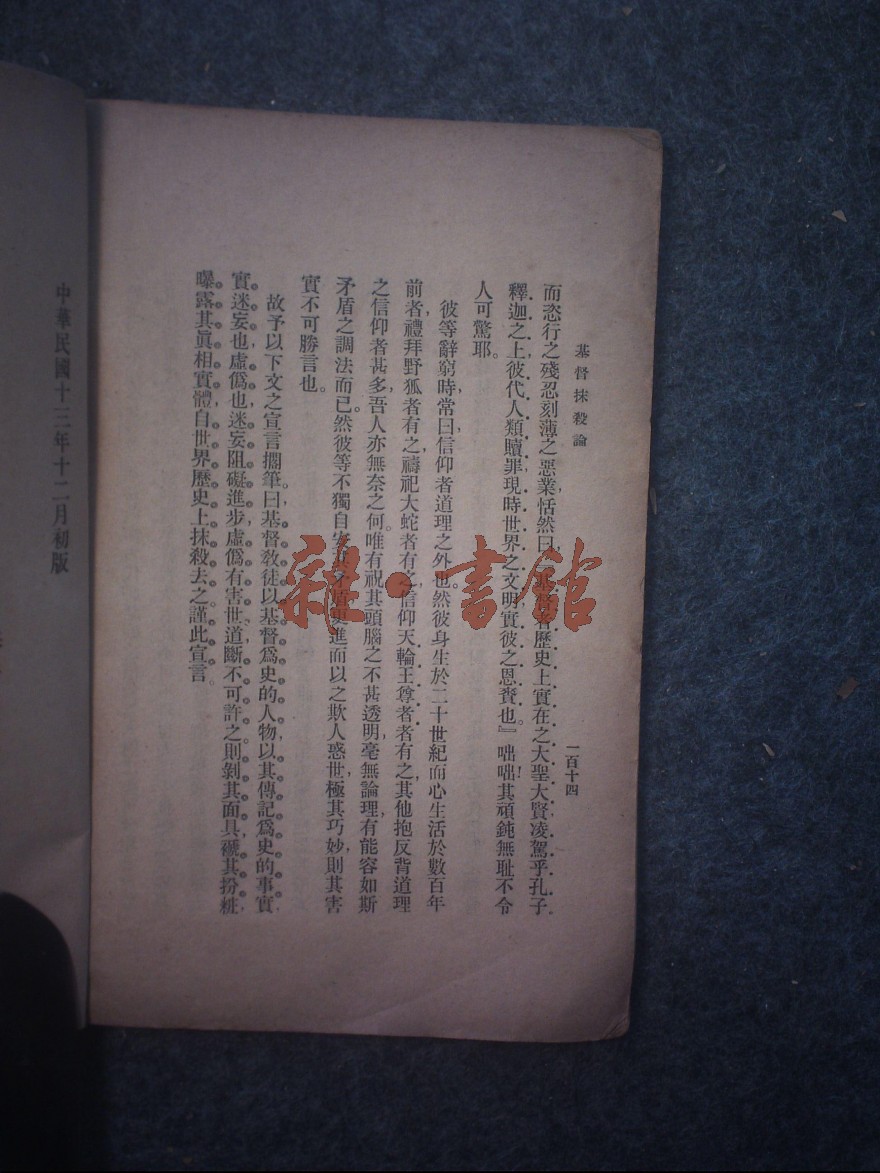 基督抹殺論
一百十四
而恣行之殘忍刻薄之惡業恬然曰『基督者歷史上實在之大聖大賢凌駕乎孔子
釋迦之上彼代人類贖罪現時世界之文明實彼之恩賚也。』咄咄其頑鈍無耻不令
人可驚耶。
彼等辭窮時常曰信仰者道理之外也然彼身生於二十世紀而心生活於數百年
前者禮拜野狐者有之禱祀大蛇者有之信仰天輪王尊者者有之其他抱反背道理
之信仰者甚多吾人亦無奈之何。唯有祝其頭腦之不甚透明毫無論理有能容如斯
矛盾之調法而已。然彼等不獨自安其矛盾更進而以之欺人惑世極其巧妙則其害
實不可勝言也。
故予以下文之宣言擱筆曰基督教徒以基督爲史的人物以其傳記爲史的事實
實迷妄也虛僞也迷妄阻礙進步虛僞有害世道斷不可許之則剝其面具褫其扮粧
曝露其眞相實體自世界歷史上抹殺去之謹此宣言。
中華民國十三年十二月初版
雜·書館